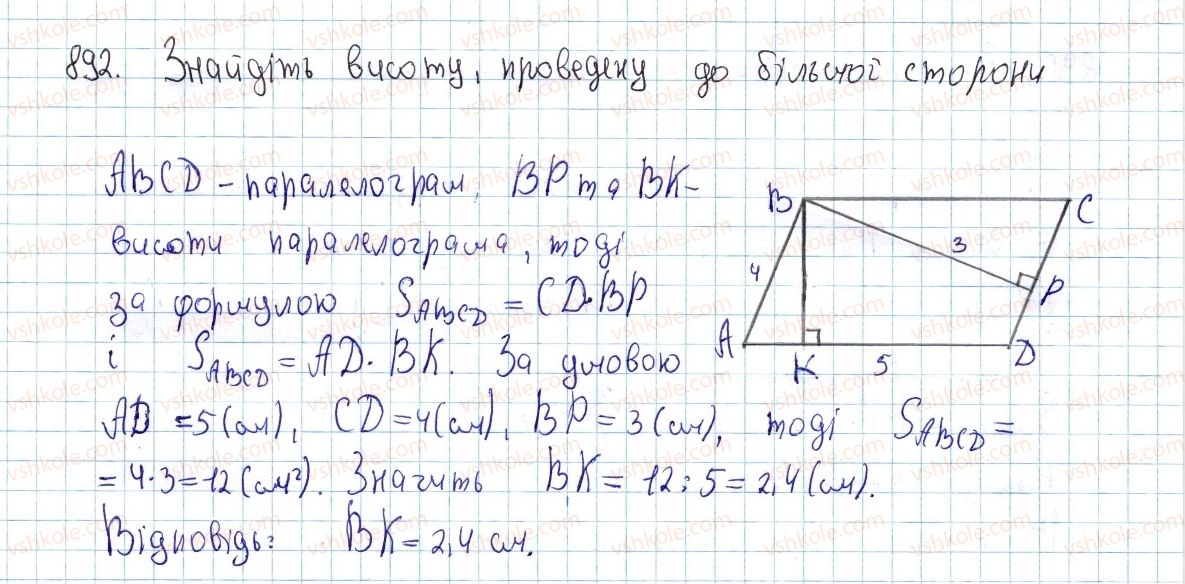 892. Знайдіть висоту, проведену до більшої сторони
ABCD – паралелограм, BP та BK –
висоти паралелограма, тоді
за формулою S_ABCD = CD·BP
і S_ABCD = AD·BK. За умовою
AD = 5 (см), CD = 4 (см), BP = 3 (см), тоді S_ABCD =
= 4·3 = 12 (см²). Значить BK = 12 : 5 = 2,4 (см).
Відповідь: BK = 2,4 см.
B
C
4
3
P
A
K
5
D
vshkole.com